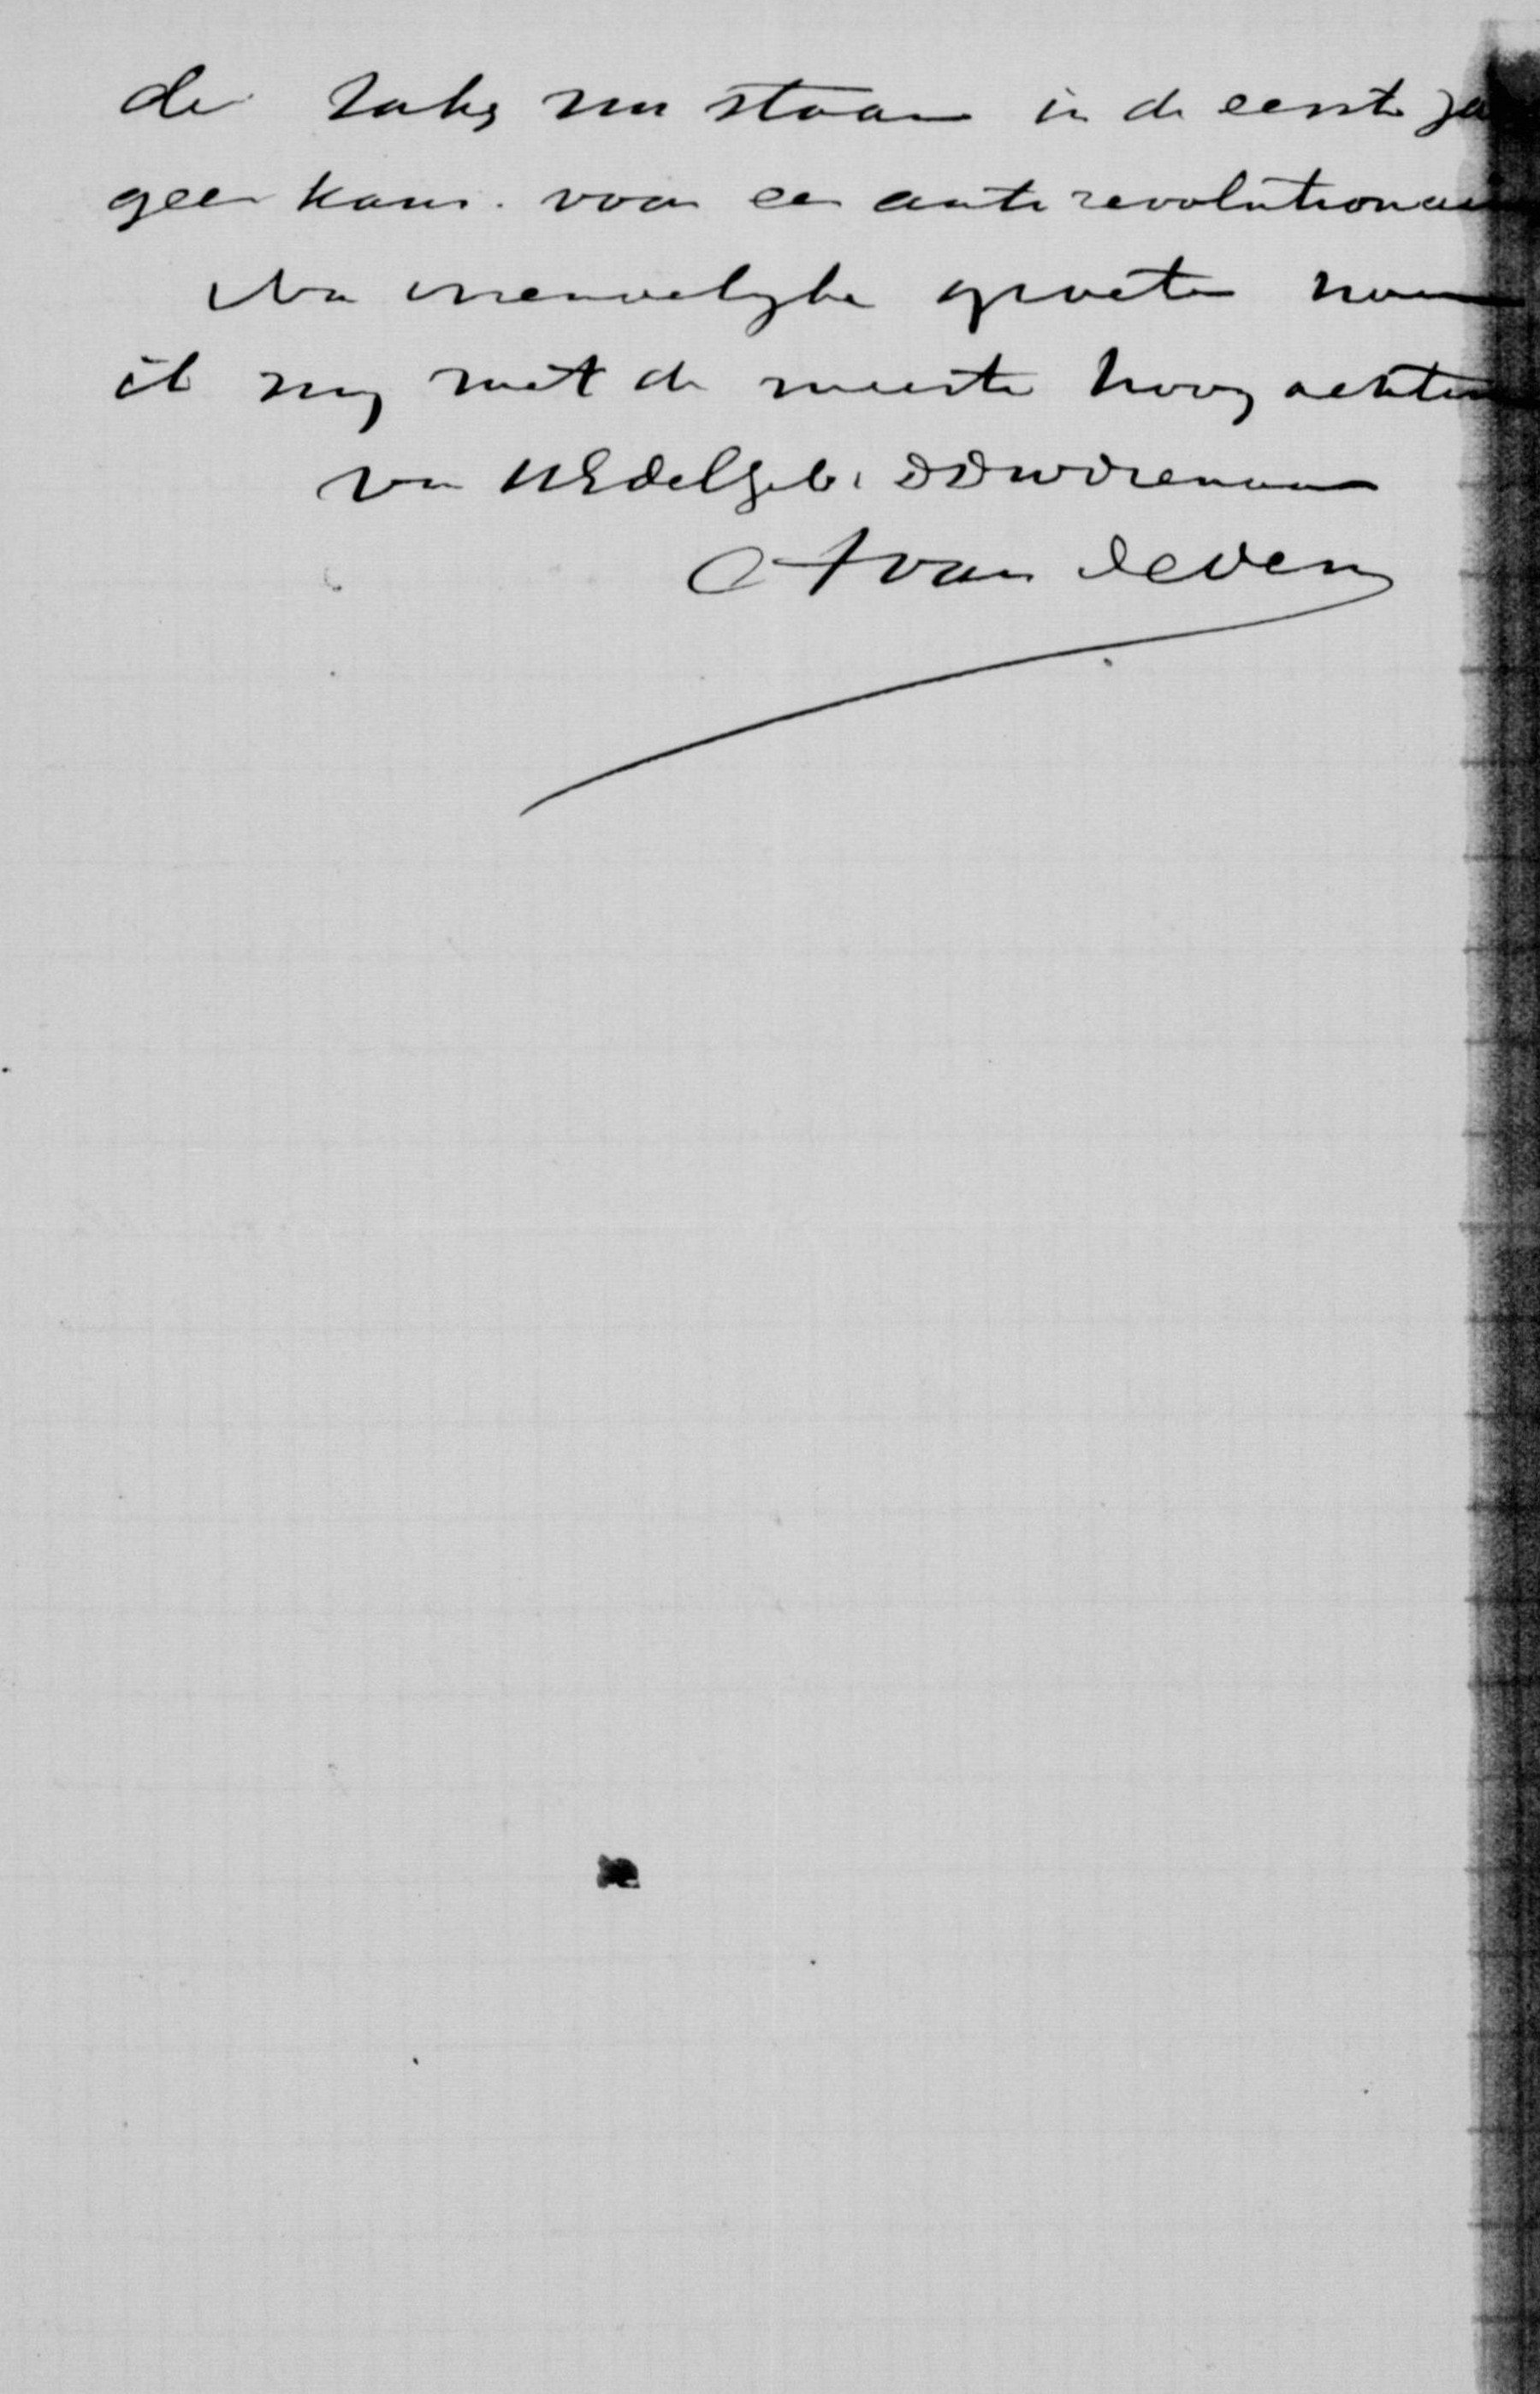 de zaken nu staan in de eerste ja
geen kans. voor een anti revolutionair
Na vriendelijke groeten noem
ik mij met de meeste hoogachten
van UEdelGeb. DDwdienaar
A van Deden